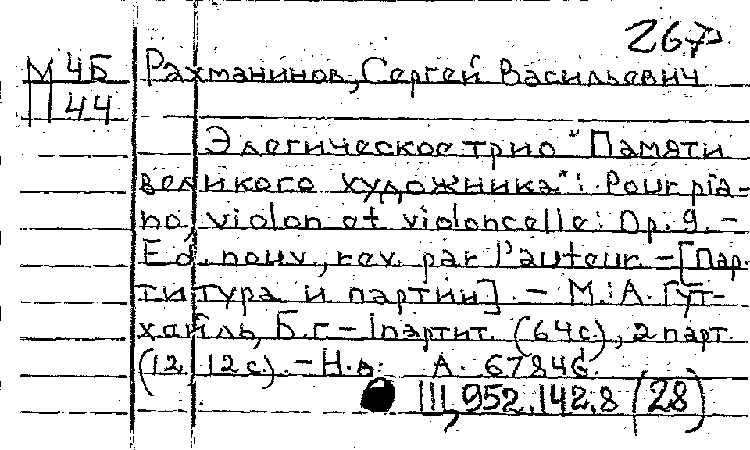 267
М 4Б Рахманинов, Сергей Васильевич
П 44
Элегическое трио "Памяти
великого художника": Pour pia-
no, violon et violoncelle: Op. 9. –
Ed. nouv., rev. par l'auteur. – [Пар-
титура и партии]. – М.: А. Гут-
хайль, Б.г. – 1партит. (64с.), 2 парт.
(12, 12с). – Н.д. А. 6784б.
111,952.142.8 (28)